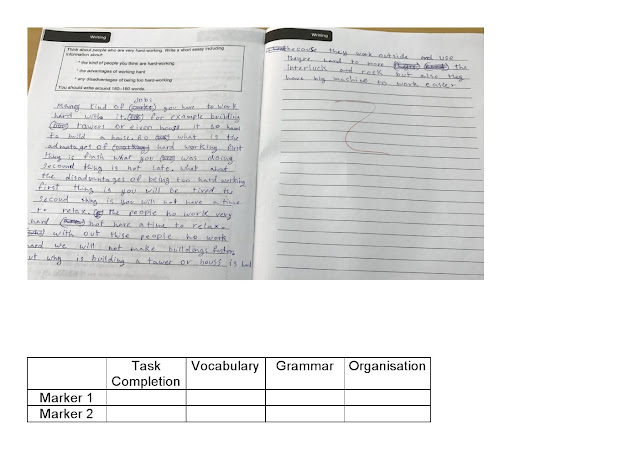 Writing
Think about people who are very hard-working. Write a short essay including
information about:
* the kind of people you think are hard-working
* the advantages of working hard
* any disadvantages of being too hard-working
You should write around 140-160 words.
Jobs
kind of you have to work
hard with it. for example building
towers or even house it so
to build a house. So what is the
of hard working first
thing is finsh what you was doing
second thing is not late. what about
the disadvantages of being too hard working
first thing is you will be tired the
second thing is you will not have a time
to relax. the people ho work very
hard not have a time to relax.
with out these people ho work
hard we will not make buildings
but why is building a tower or house is
Writing
because they work outside and use
hand to more the
and rock but also they
have big machine to work easier
Task Completion Vocabulary Grammar Organisation
Marker 1
Marker 2